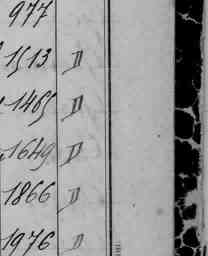 977
1513 D
1465 D
1649 D
1866 D
1976 D